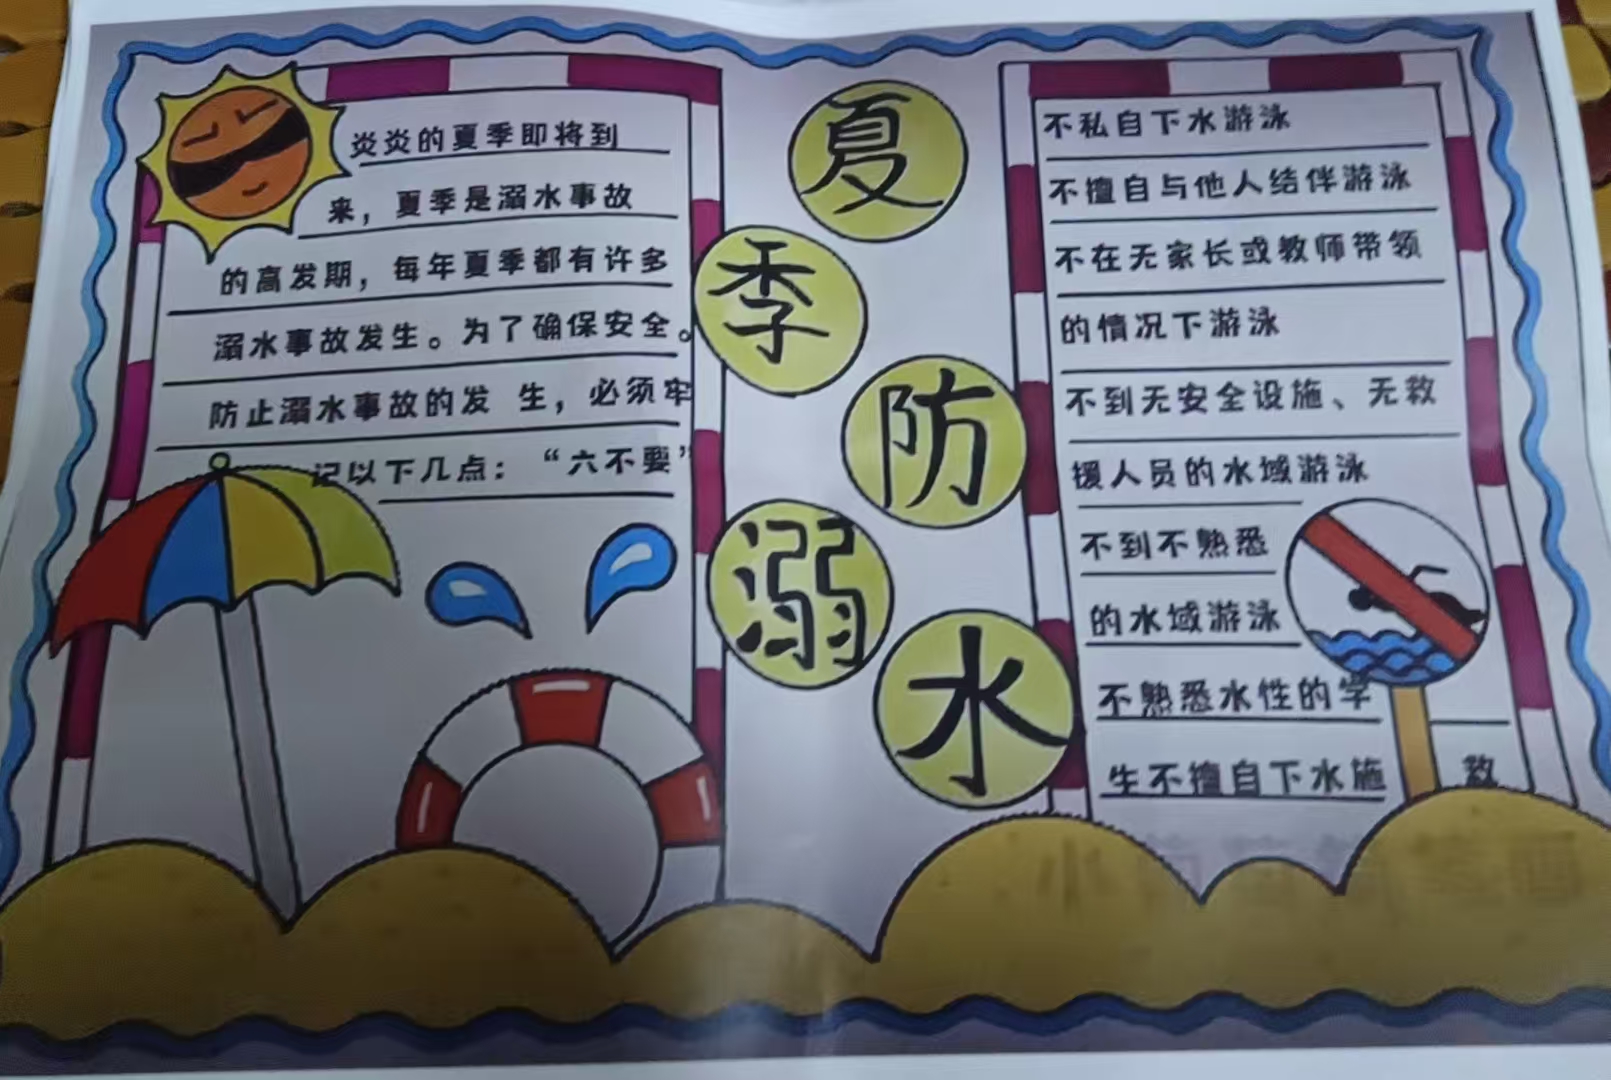 炎炎的夏季即将到
来，夏季是溺水事故
的高发期，每年夏季都有许多
溺水事故发生。为了确保安全。
防止溺水事故的发 生，必须牢
记以下几点：“六不要”
夏
季
防
溺
水
不私自下水游泳
不擅自与他人结伴游泳
不在无家长或教师带领
的情况下游泳
不到无安全设施、无救
援人员的水域游泳
不到不熟悉
的水域游泳
不熟悉水性的学
生不擅自下水施 救